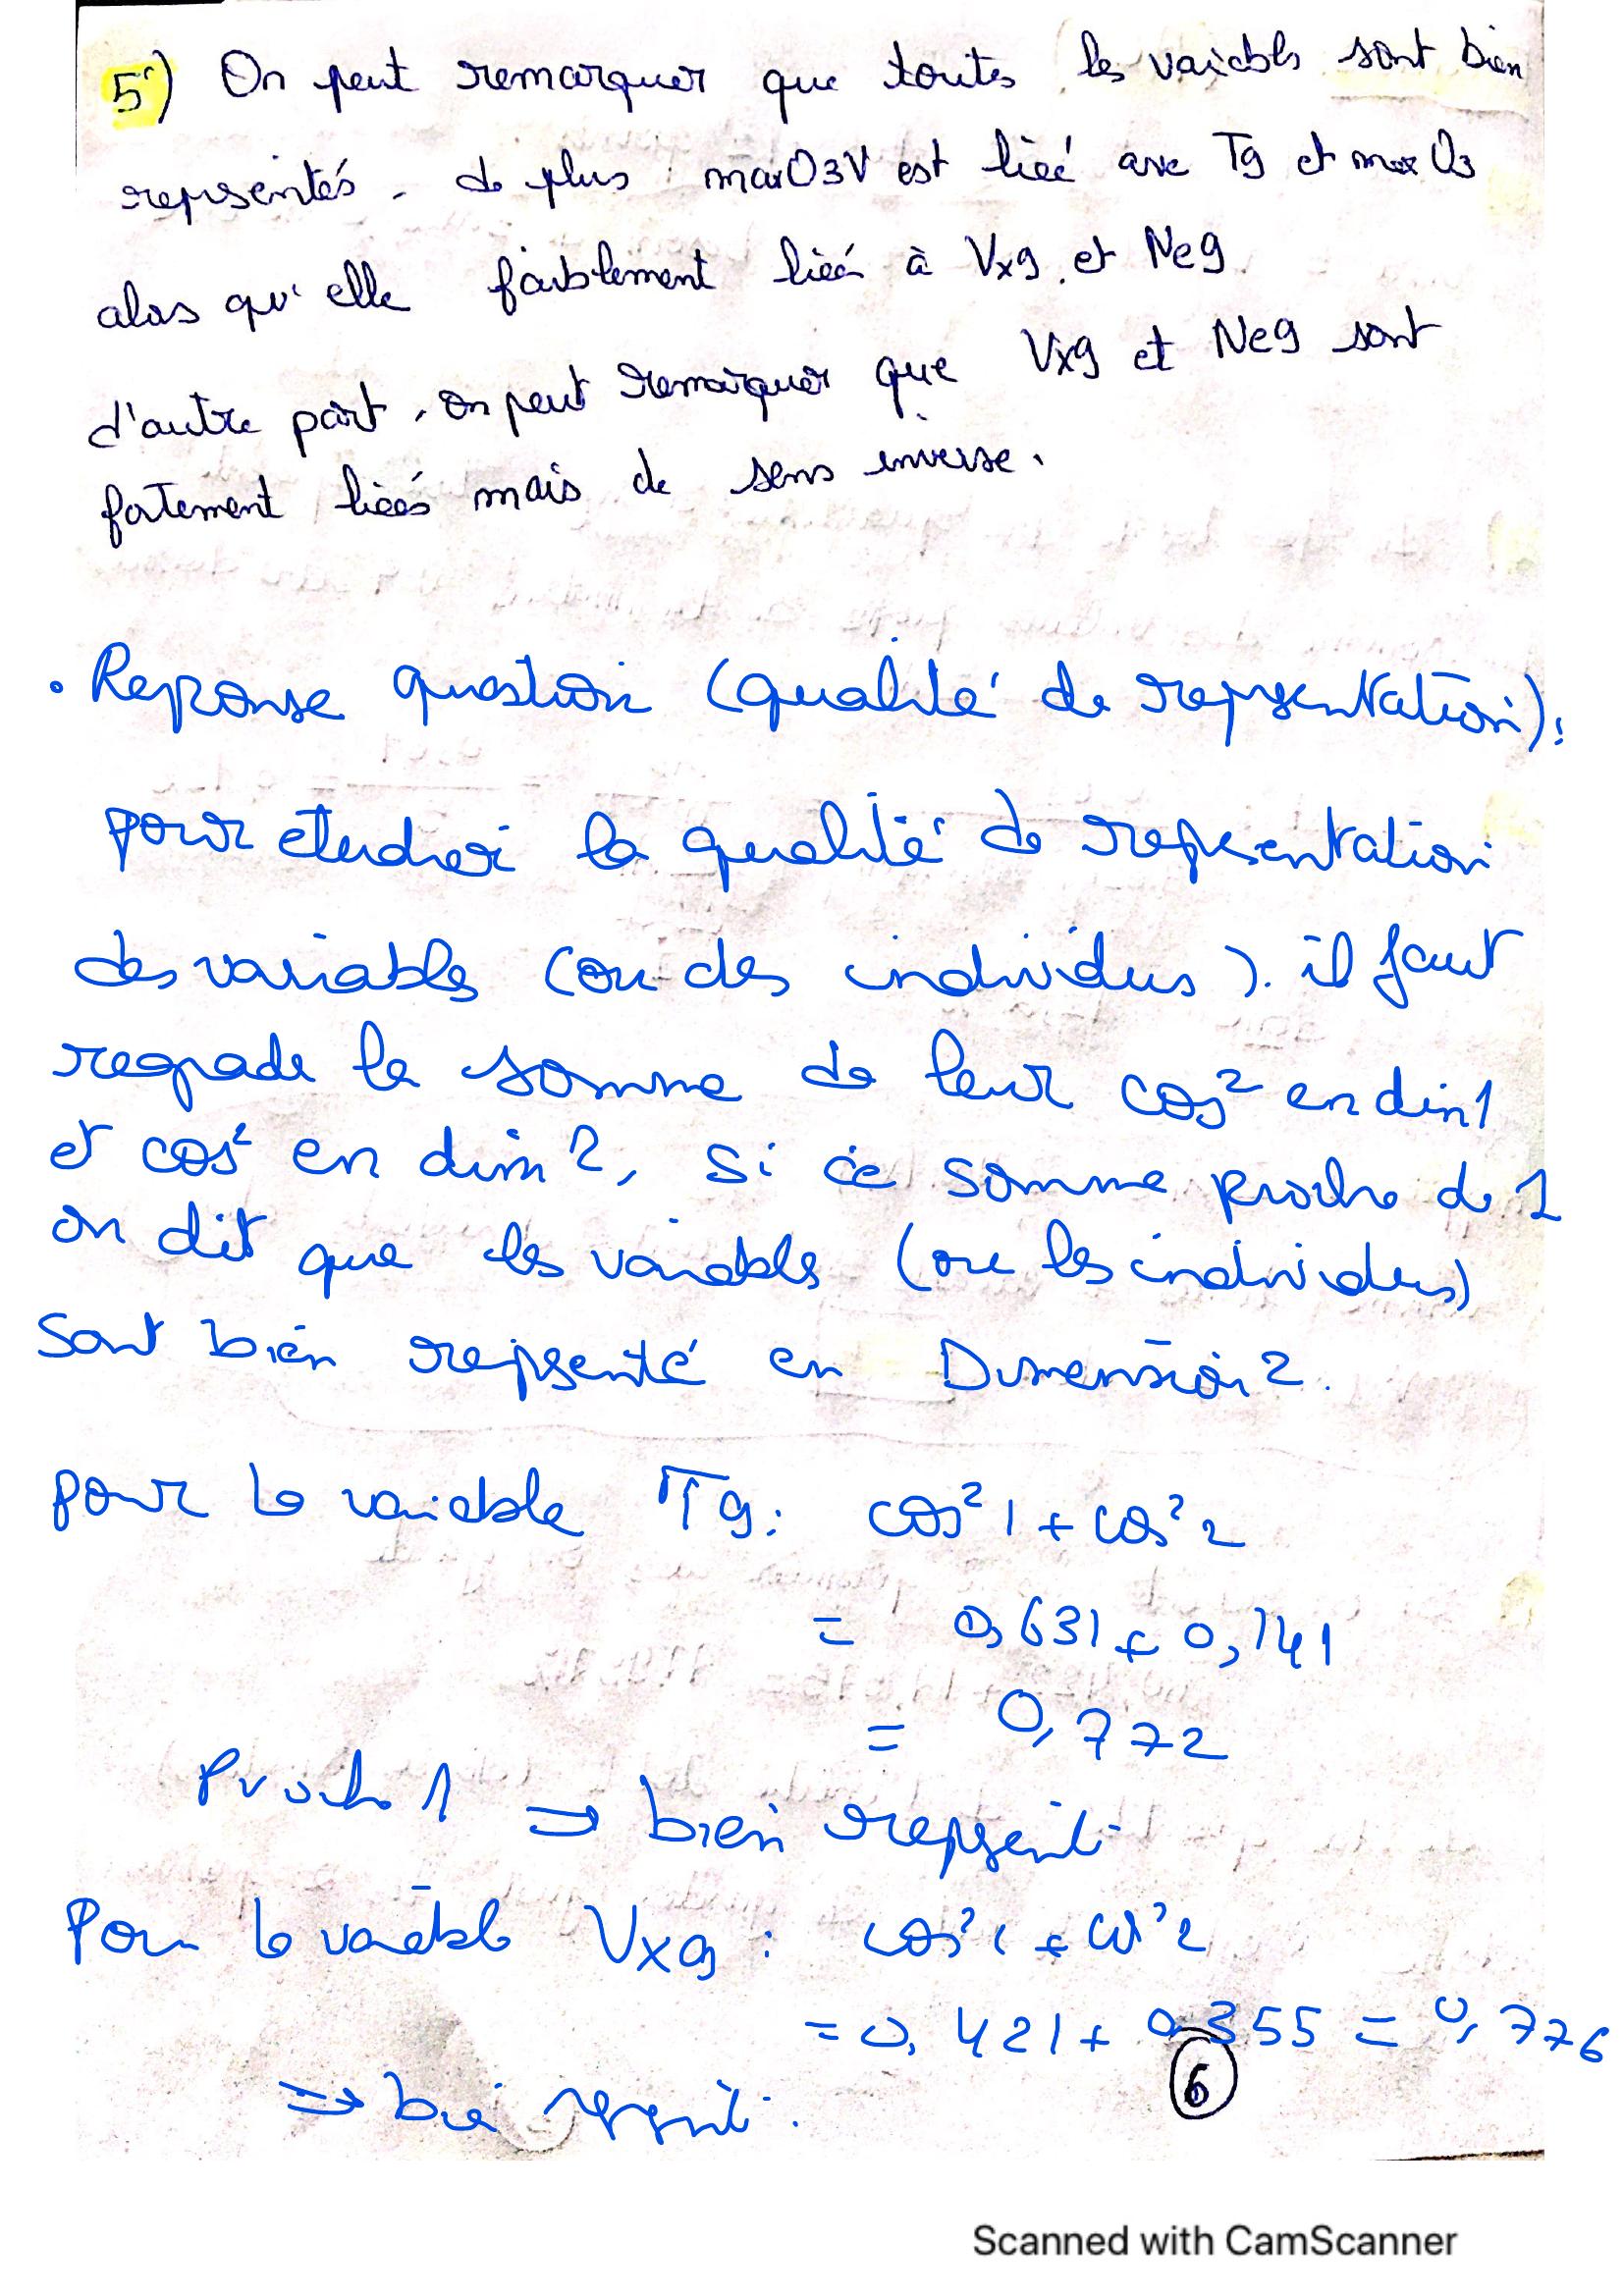 5°) On peut remarquer que toutes les variabls sont bien
représintés, de plus maxO3V est lieé avec T9 et max O3
alors qu'elle faiblement lieé à Vx9 et Ne9
d'autre part, on peut remarquer que Vx9 et Ne9 sont
fortement lieés mais de sens inverse.
• Reponse question (qualité de representation):
pour étudier la qualité de representation
des variables (ou des individus). il faut
regrade la somme de leur cos² en dim1
et cos² en dim2, si ce somme proche de 1
on dit que les variables (ou les individus)
sont bien repsenté en Dimension 2.
pour la variable T9: cos²1 + cos²2
= 0,631 + 0,141
= 0,772
Proche 1 ⇒ bien repsent
Pour la variable Vx9 : cos²1 + cos²2
= 0,421 + 0,355 = 0,776
⇒ bien
6
Scanned with CamScanner